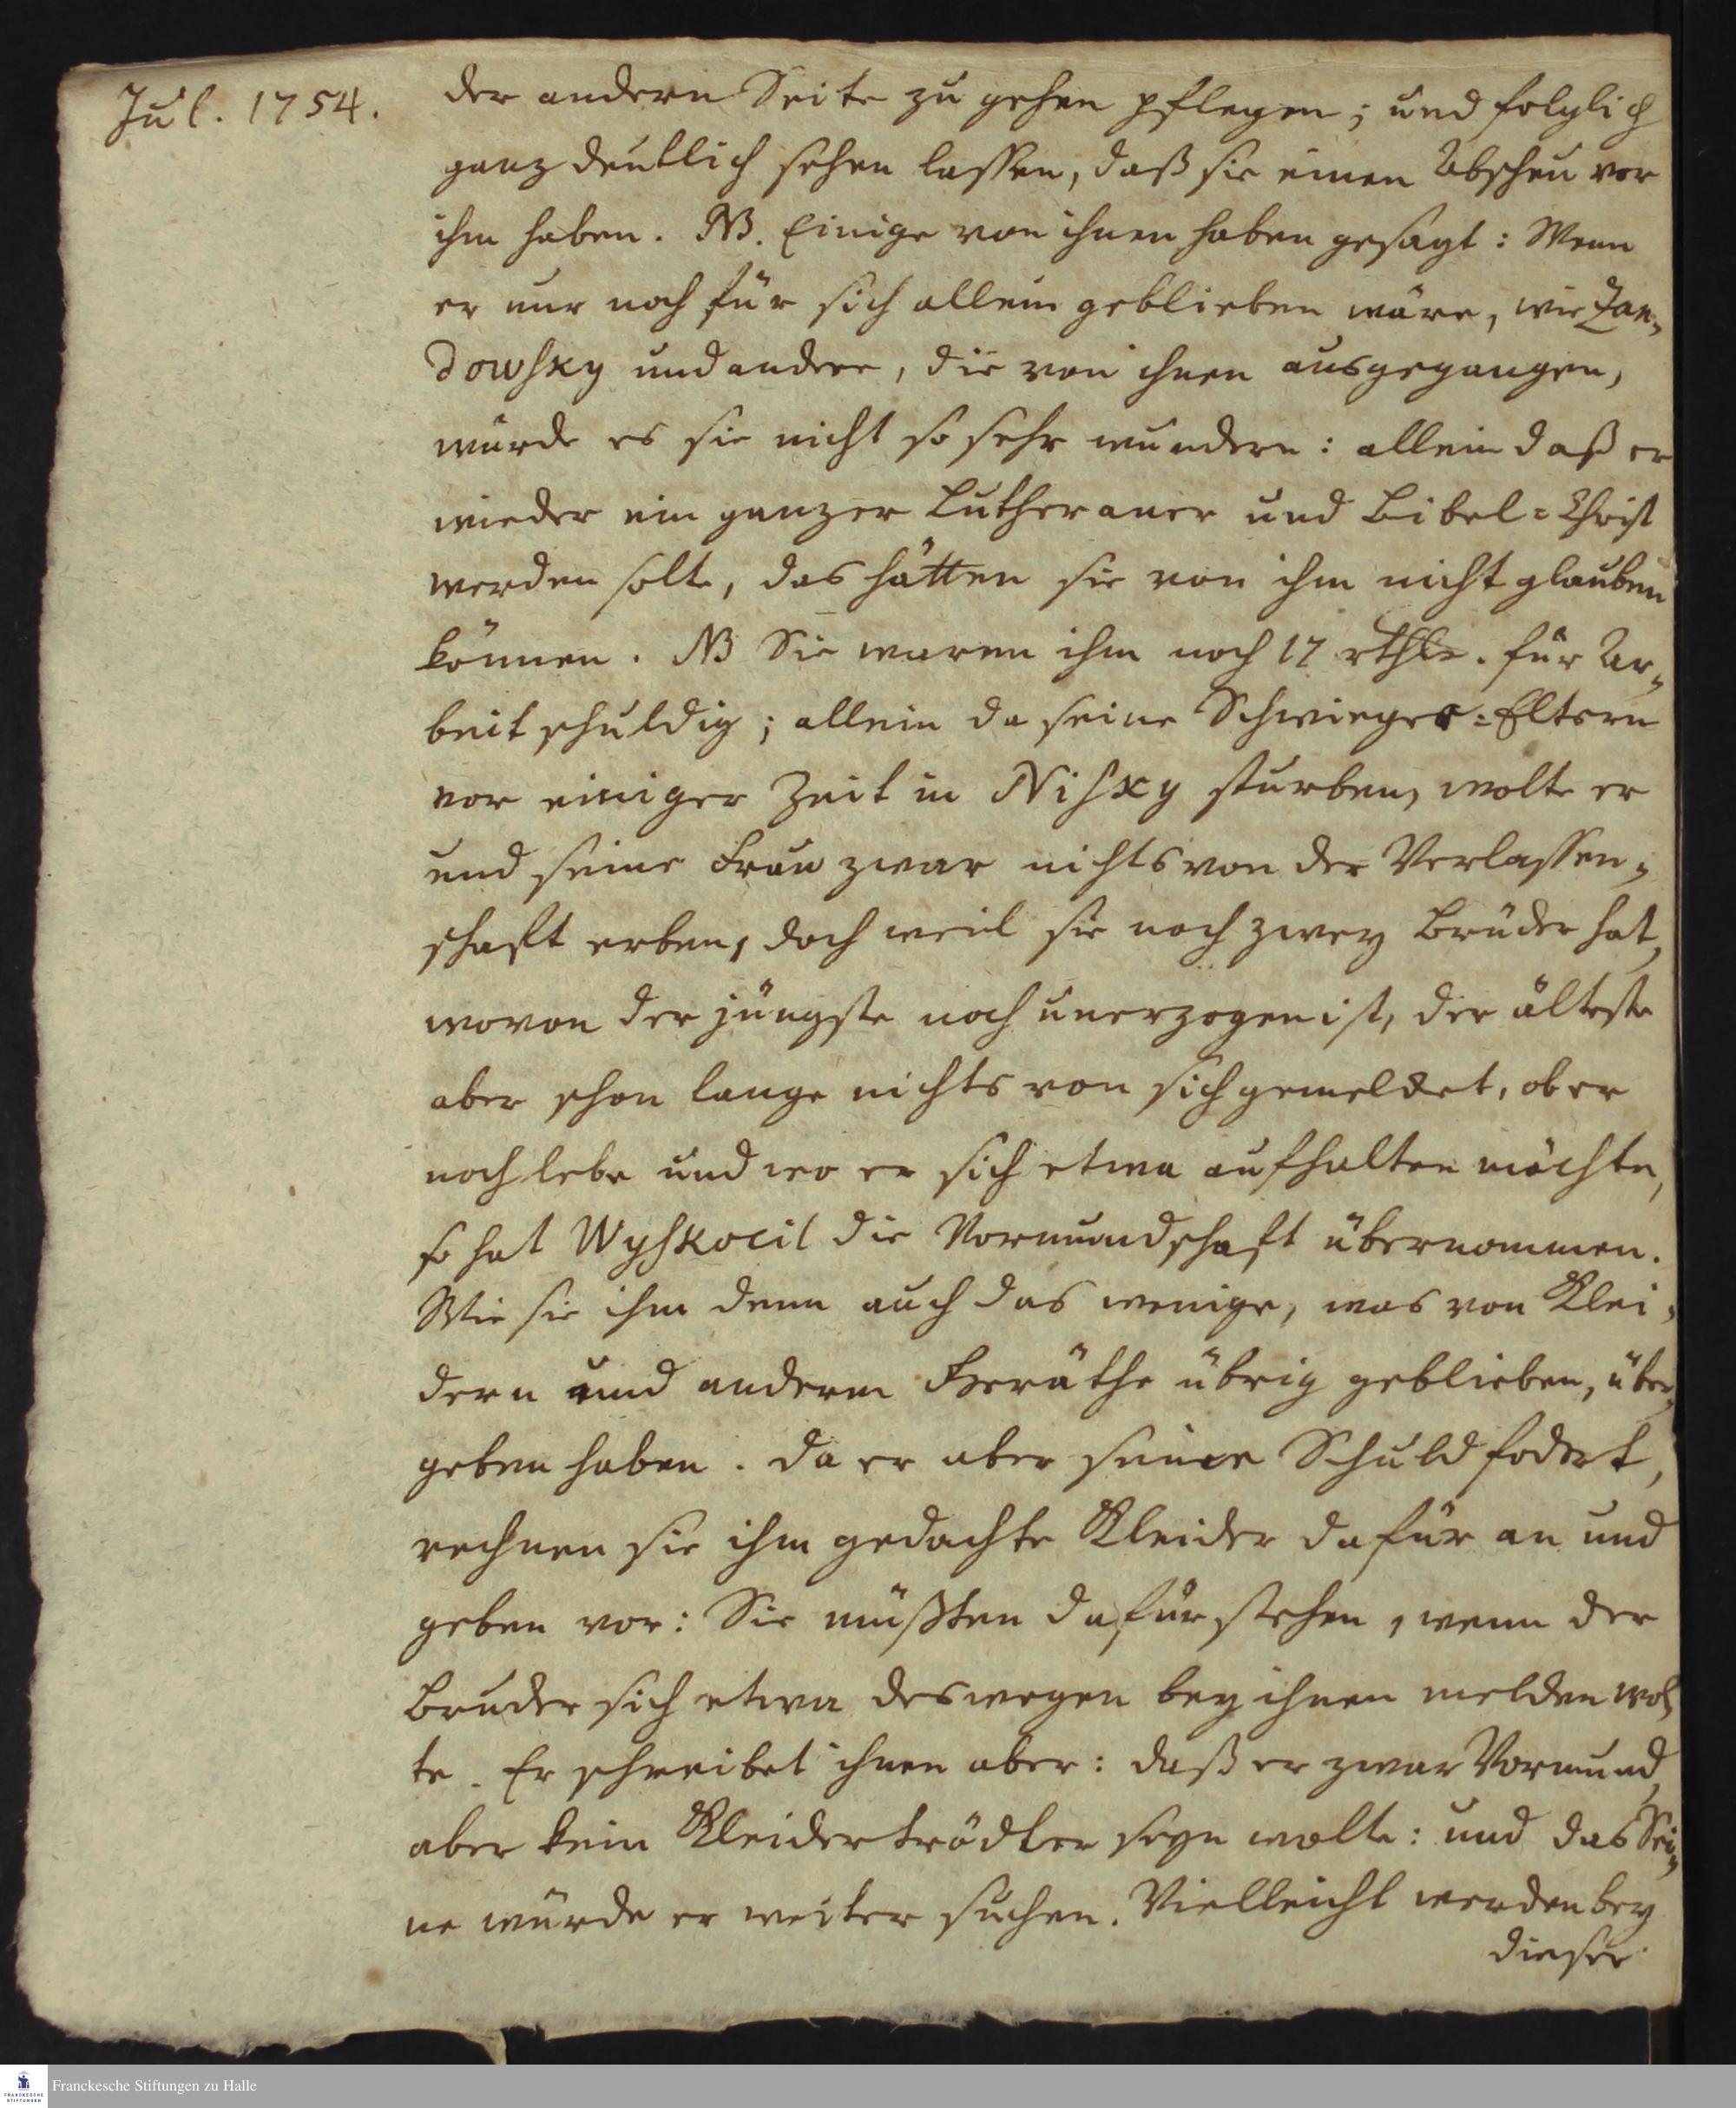 Jul. 1754.
der andern Seite zu gehen pflegen; und folglich
ganz deutlich sehen lassen, daß sie einen Abscheu vor
ihm haben. NB. Einige von ihnen haben gesagt: Wenn
er nur noch für sich allein geblieben wäre, wie Zan„
dowsky und andere, die von ihnen ausgegangen,
würde es sie nicht so sehr wundern: allein daß er
wieder ein ganzer Lutheraner und Bibel=Christ
werden solte, das hätten sie von ihm nicht glauben
können. NB Sie waren ihm noch 17 rthlr. für Ar„
beit schuldig; allein da seine Schwieger=Eltern
vor einiger Zeit in Nisky sturben, wolte er
und seine Frau zwar nichts von der Verlassen„
schaft erben, doch weil sie noch zwey Brüder hat,
wovon der jüngste noch unerzogen ist, der älteste
aber schon lange nichts von sich gemeldet, ob er
noch lebe und wo er sich etwa aufhalten möchte,
so hat Wyskocil die Vormundschaft übernommen.
Wie sie ihm denn auch das wenige, was von Klei„
dern und anderm Geräthe übrig geblieben, über„
geben haben. Da er aber seine Schuld fodert,
rechnen sie ihm gedachte Kleider dafür an und
geben vor: Sie müßten dafür stehen, wenn der
Bruder sich etwa deswegen bey ihnen melden wol„
te. Er schreibet ihnen aber: daß er zwar Vormund,
aber kein Kleidertrödler seyn wolte: und das Sei„
ne würde er weiter suchen. Vielleicht werden bey
dieser
Franckesche Stiftungen zu Halle
FRANCKESCHE
STIFTUNGEN